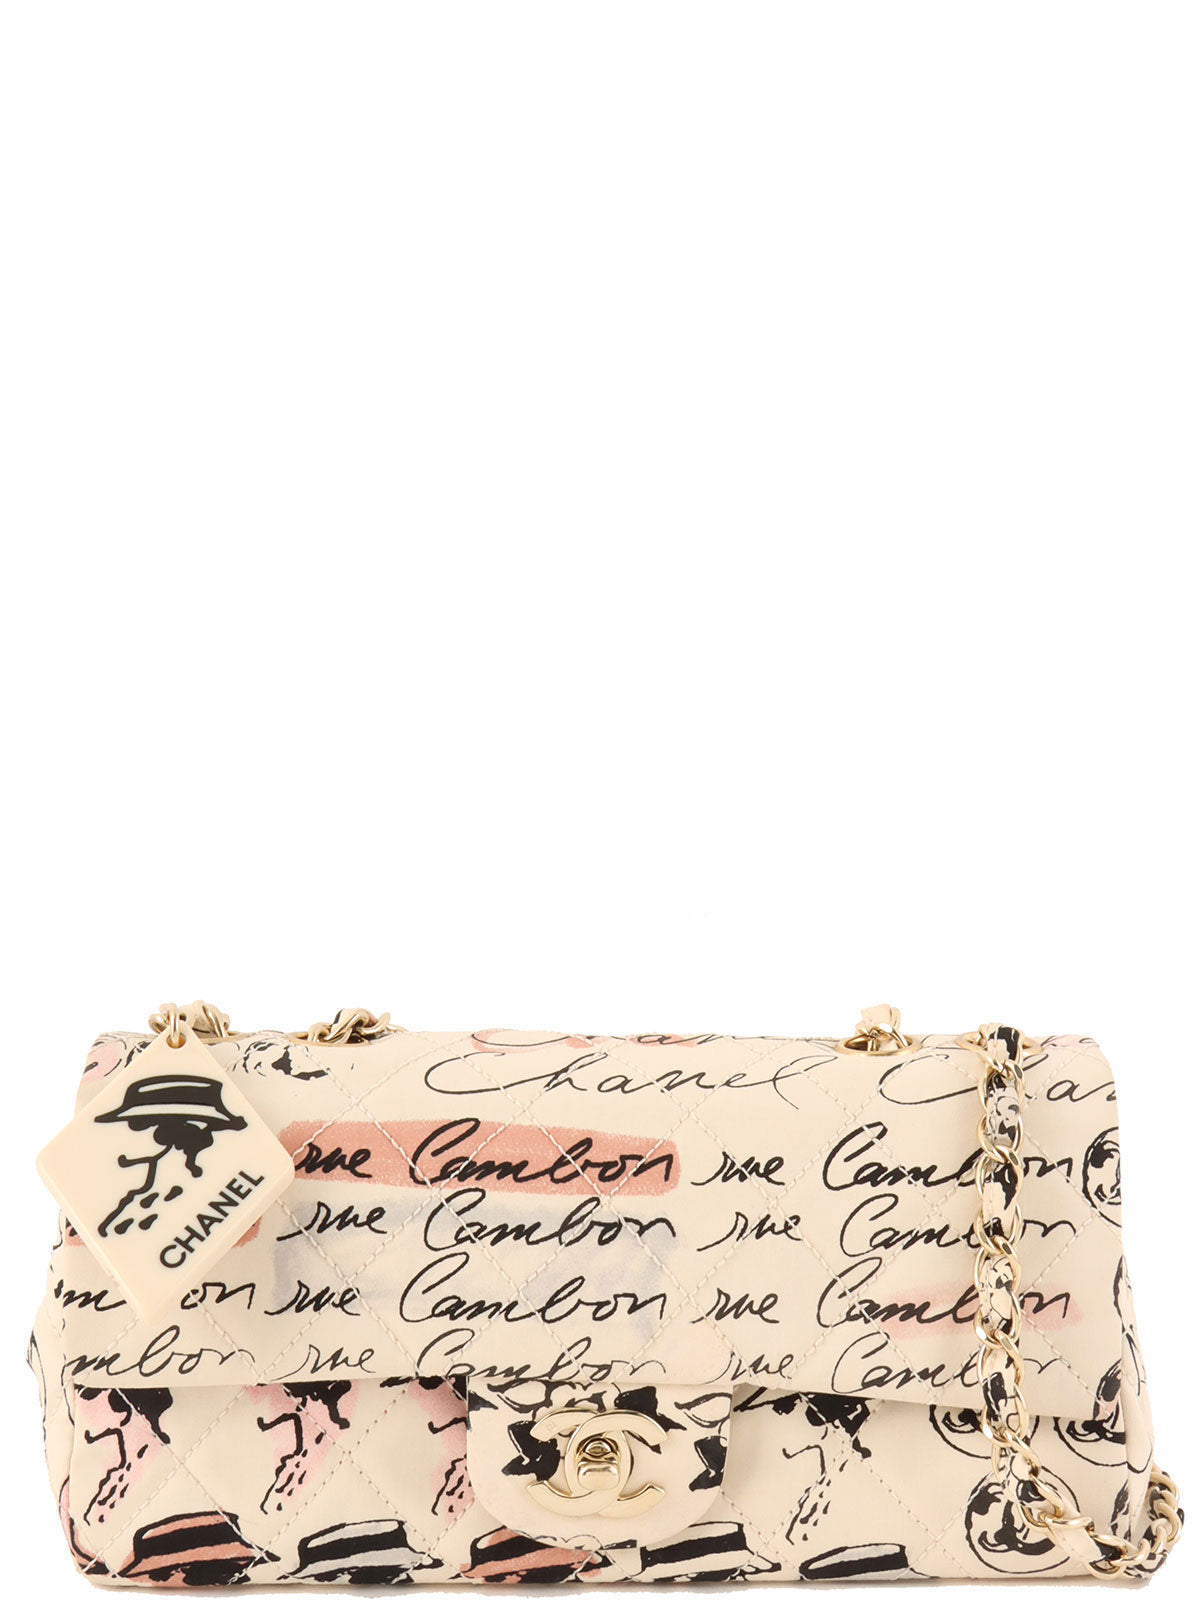 Chanel
Chanel Chan
rue Cambon rue Cambon
rue Cambon rue Cambon
mbon rue Cambon rue Cambon
mbon rue Cambon rue Cambon
CHANEL